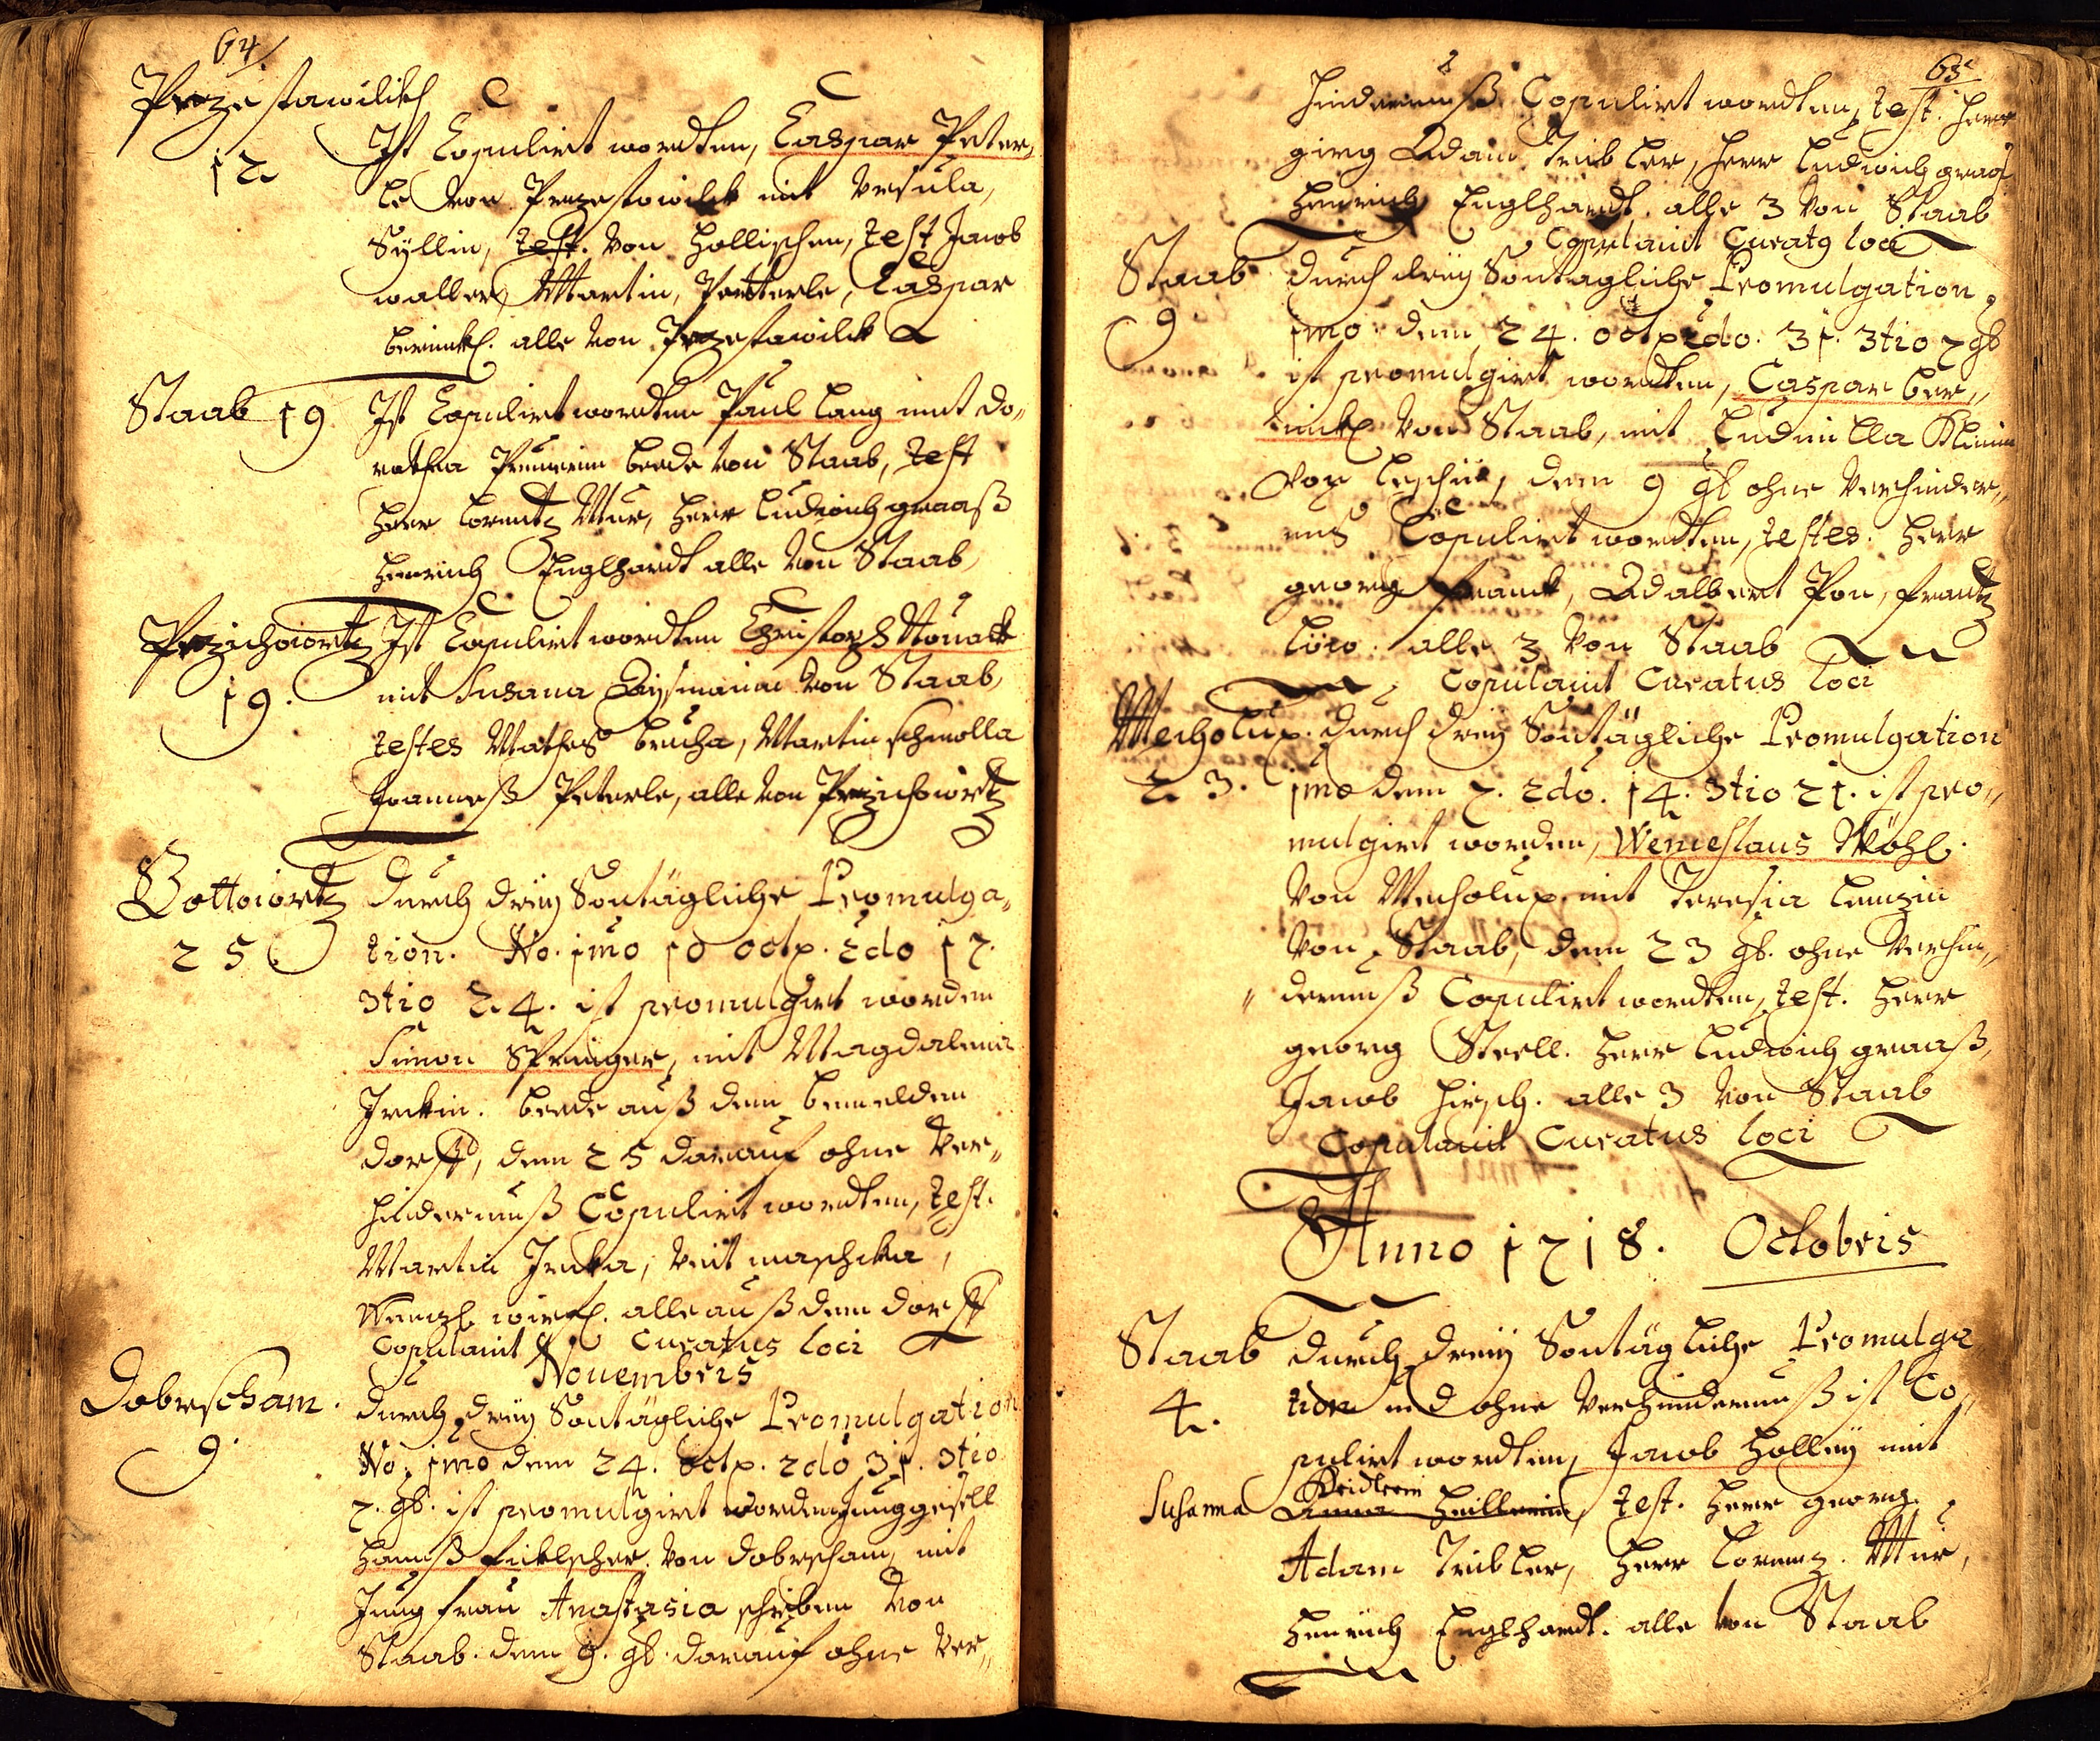 64.
Przestawilckh
12
Ist Copulirt wordten, Caspar Peter,,
le von Przestawilck mit Vrsula,
Syllin, test. von Hollischen, test Jacob
waller, Martin, Peterle, Caspar
alle von Przestawilck
Staab 19
Ist Copulirt wordten Paul Lang mit Do,,
rothea beede von Staab, test
Herr Lorentz Mur, Herr Ludwich graaß
Heinrich Englhardt alle von Staab,
Przichowitz
19.
Ist Copulirt wordten Christoph Nouack
mit Susana von Staab,
testes Mathes brucha, Martin schmolla
Joanneß Peterle, alle von Przichowitz
Gottowitz
25
durch dreÿ Sontägliche Promulga,,
tion. No. jmo 10 octp. 2do 17.
3tio 24. ist promulgirt worden
Simon Springer, mit Magdalena
Jrckin. beede auß dem bemelden
dorff, dem 25 darauf ohne Ver,,
hindernuß Copulirt wordten, test.
Martin Jrcka, Veit maschcka,
Wentzl alle auß dem dorff
Copulauit Curatus loci
Nouembris
Dobrscham.
9.
durch dreÿ Sontägliche Promulgation
No. jmo dem 24. octp. 2do 31. 3tio
7. 9b. ist promulgirt worden Junggesell
Hannß ficklscher von dobrscham mit
Jungfrau Anastasia schrben von
Staab. dem 9. 9b. darauf ohne Ver,,
65
hindernuß Copulirt wordten, test. Herr
girg Adam Tribler, Herr Ludwich graaß
Heinrich Englhardt. alle 3 von Staab
Copulauit Curatq loci
Staab
9
durch dreÿ Sontagliche Promulgation
jmo dem 24. octp 2do. 31. 3tio 7 9b
ist promulgirt wordten, Caspar ber,,
von Staab, mit Ludmilla
von dem 9 9b ohne Verhinder,,
nuß Copulirt wordten, testes. Herr
georg franck, Adalbert Pon, frantz
löw. alle 3 von Staab
Copulauit Curatus loci
Mecholup.
23.
durch dreÿ Sontägliche Promulgation
jmo dem 7. 2do. 14. 3tio 21. ist pro,,
mulgirt worden, Wenceslaus Wöhl.
von Mecholup. mit Teresia Lentzin
von Staab, dem 23 9b. ohne Verhin,,
dernuß Copulirt wordten, test. Herr
georg Stroll. Herr Ludwich graaß,
Jacob Hirsch. alle 3 von Staab
Copulauit Curatus loci
Anno 1718. Octobris
Staab
4.
durch dreÿ Sontägliche Promulga
tion und ohne Verhindernuß ist Co,,
pulirt wordten, Jacob Holleÿ mit
Susanna Kridlerin Anna test. Herr georg
Adam Tribler, Herr Lorentz. Mur,
Heinrich Englhardt. alle von Staab